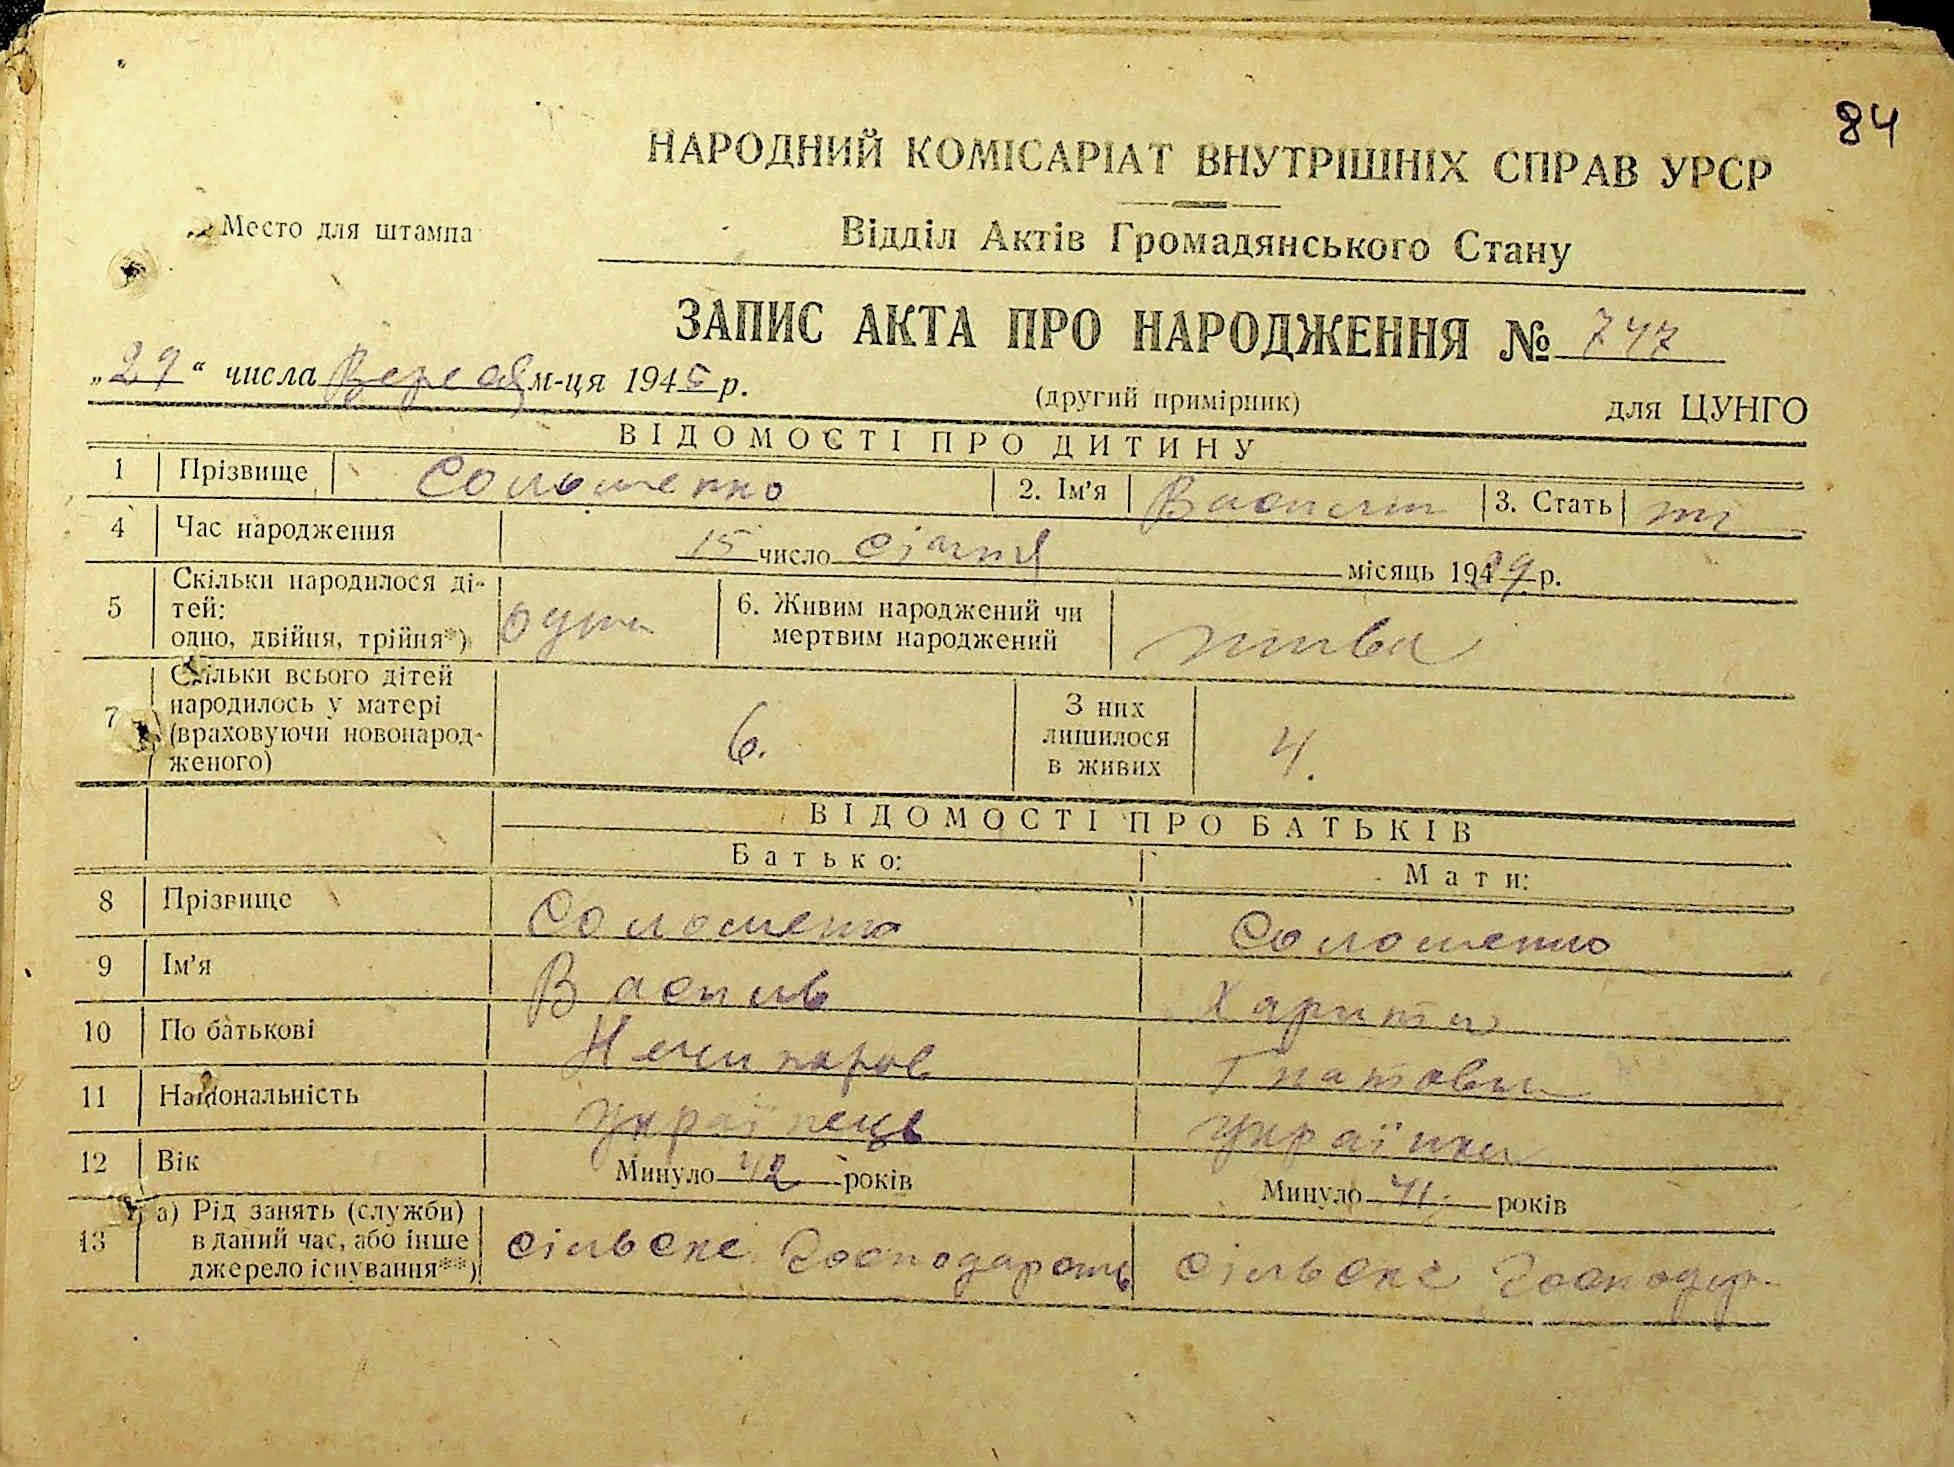 84
НАРОДНИЙ КОМІСАРІАТ ВНУТРІШНІХ СПРАВ УРСР
Место для штампа
Відділ Актів Громадянського Стану
ЗАПИС АКТА ПРО НАРОДЖЕННЯ № 747
„29“ числа Вересня м-ця 1945 р.
(другий примірник) для ЦУНГО
ВІДОМОСТІ ПРО ДИТИНУ
1 Прізвище Соломенко 2. Ім'я Василь 3. Стать
4 Час народження 15 число Січня місяць 1929 р.
5 Скільки народилося ді-
тей:
одно, двійня, трійня*) одна 6. Живим народжений чи
мертвим народжений жива
7 Скільки всього дітей
народилось у матері
(враховуючи новонарод-
женого) 6. З них
лишилося
в живих 4.
ВІДОМОСТІ ПРО БАТЬКІВ
Батько: Мати:
8 Прізвище Соломенко Соломенко
9 Ім'я Василь Харити
10 По батькові Нечипоров Гнатовна
11 Національність Українець Українка
12 Вік Минуло 42 років Минуло 41 років
13 а) Рід занять (служби)
в даний час, або інше
джерело існування**) сільське господарств сільське господар